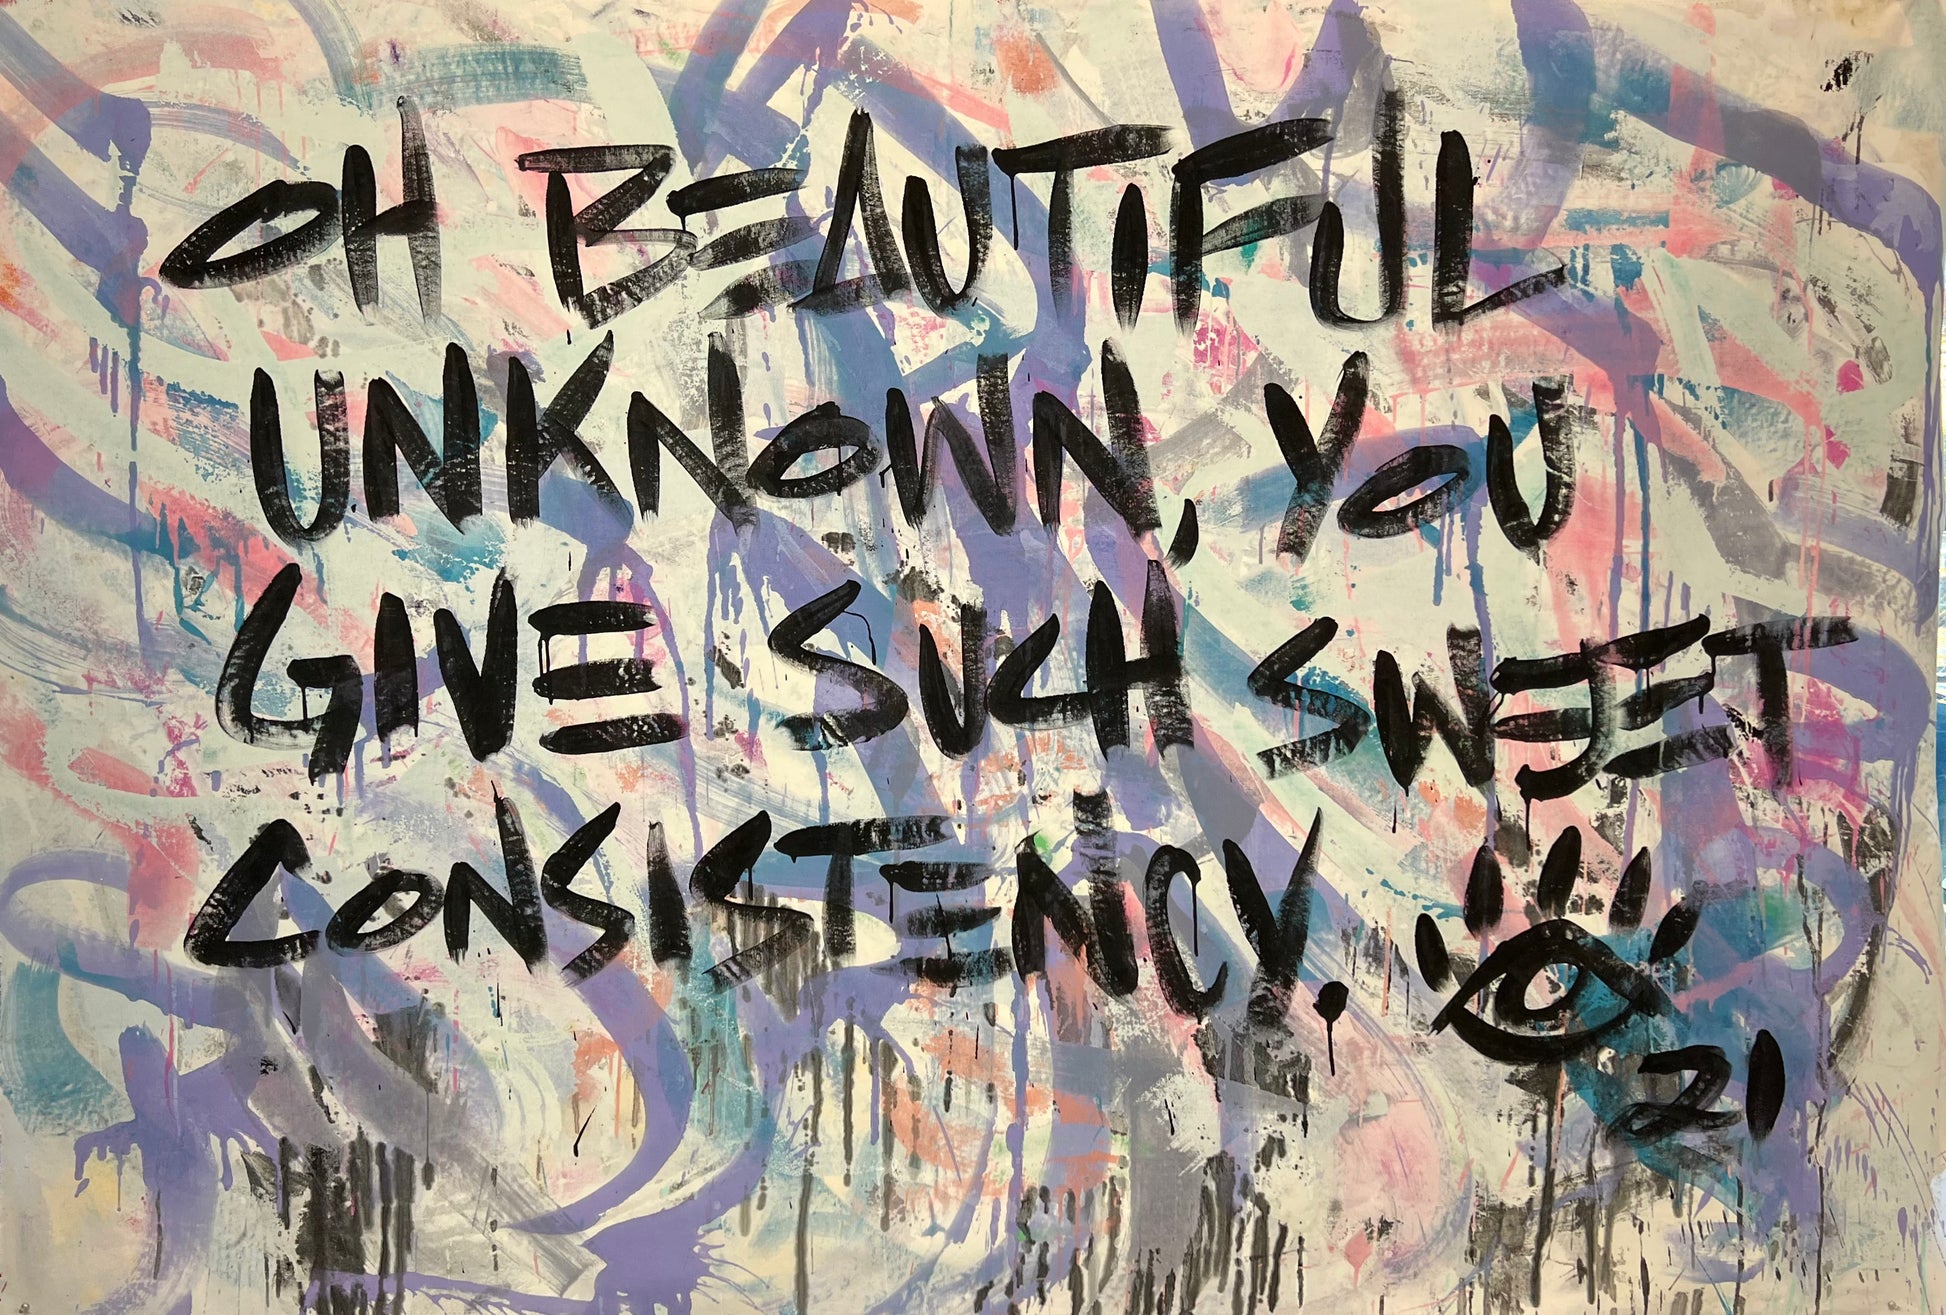 OH BEAUTIFUL
UNKNOWN, YOU
GIVE SUCH SWEET
CONSISTENCY.
21